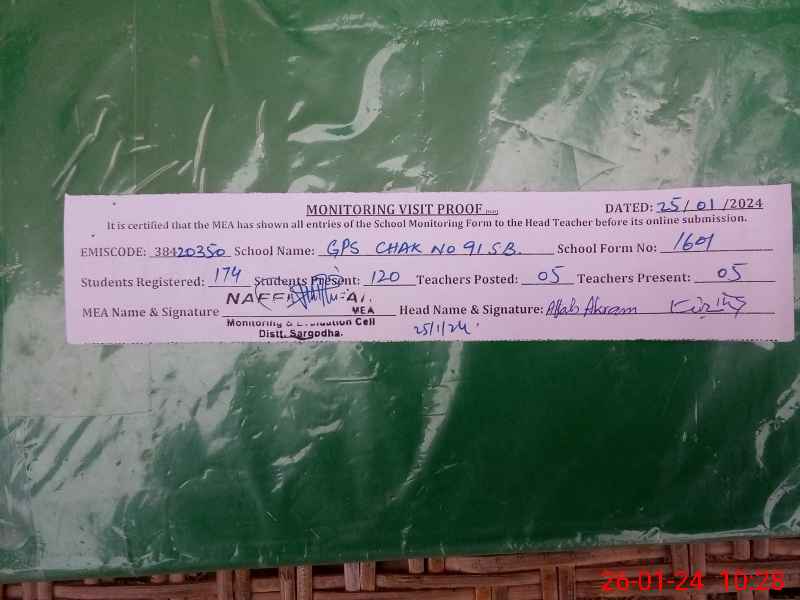 MONITORING VISIT PROOF DATED: 25/01/2024
It is certified that the MEA has shown all entries of the School Monitoring Form to the Head Teacher before its online submission.
EMISCODE: 38420350 School Name: GPS CHAK NO 91 SB. School Form No: 1601
Students Registered: 174 Students Present: 120 Teachers Posted: 05 Teachers Present: 05
MEA Name & Signature MEA Head Name & Signature: Aftab Akram
Monitoring & Evaluation Cell 25/1/24
Distt. Sargodha.
26-01-24 10:28